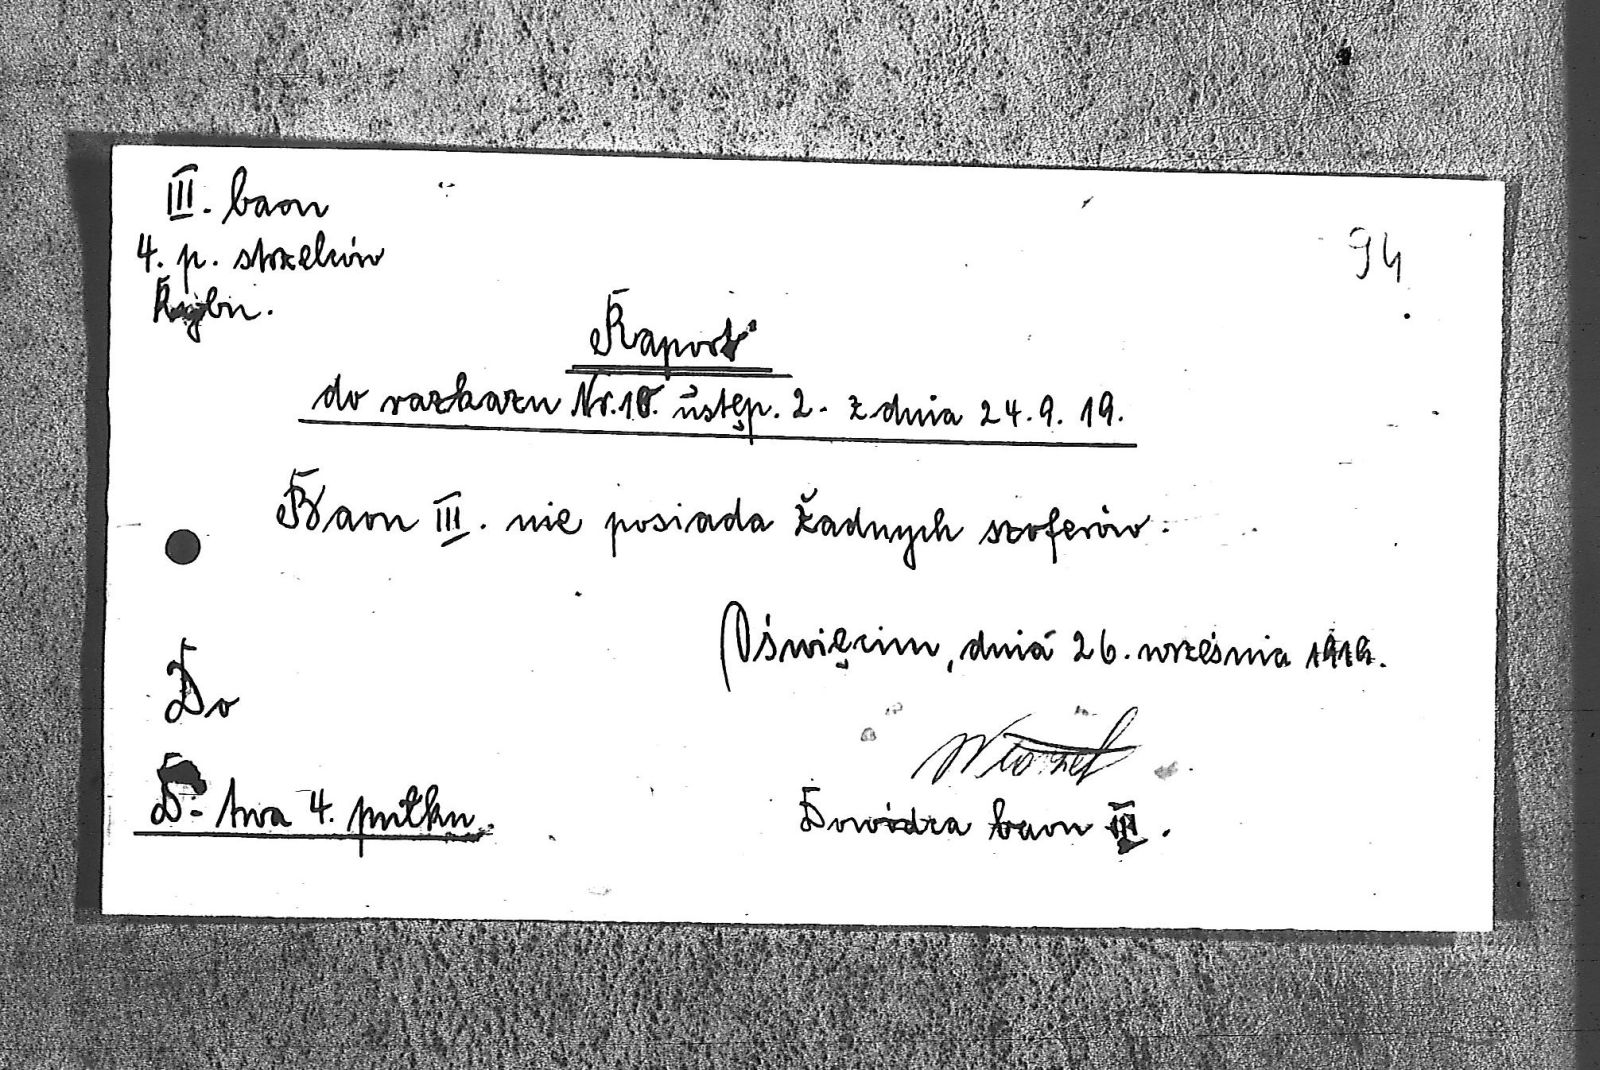 III. baon
4. p. strzelców
94
Raport
do rozkazu Nr. 18. ustęp. 2. z dnia 24.9.19.
Baon III. nie posiada żadnych szoferów.
Oświęcim, dnia 26. września 1919.
Do
D-twa 4. pułku.
Dowódca baon III.